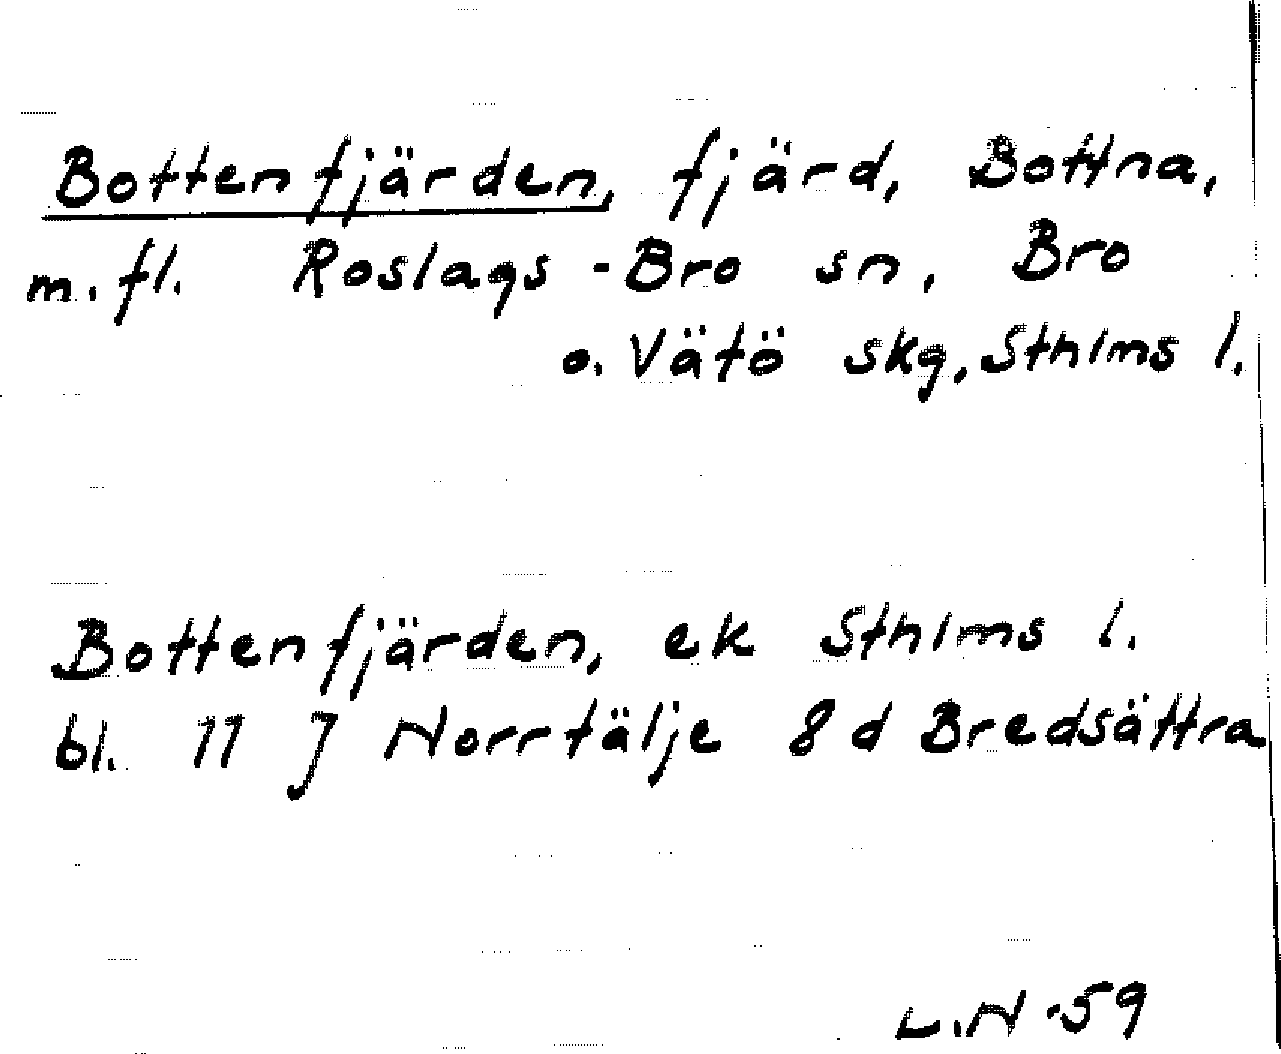 Bottenfjärden, fjärd, Bottna,
m.fl. Roslags-Bro sn, Bro
o. Vätö skg, Sthlms l.
Bottenfjärden, ek Sthlms l.
bl. 11 J Norrtälje 8 d Bredsättra
L.N -59